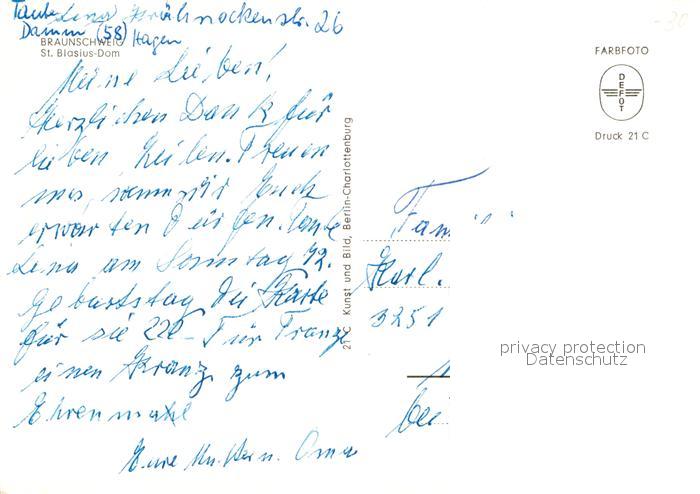 Tante Lena Krähnockenstr. 26
Damm (58) Hagen
BRAUNSCHWEIG
St. Blasius-Dom
Meine Lieben!
Herzlichen Dank für
lieben Zeilen. Freuen
uns, wenn wir Euch
erwarten dürfen. Tante
Lena am Sonntag 72.
Geburtstag die Karte
für sie Für Franz
einen Kranz zum
Ehrenmahl
Eure Oma
21 C Kunst und Bild, Berlin-Charlottenburg
FARBFOTO
DEFOT
Druck 21 C
Fam
Karl.
3251
bei
privacy protection
Datenschutz
-30